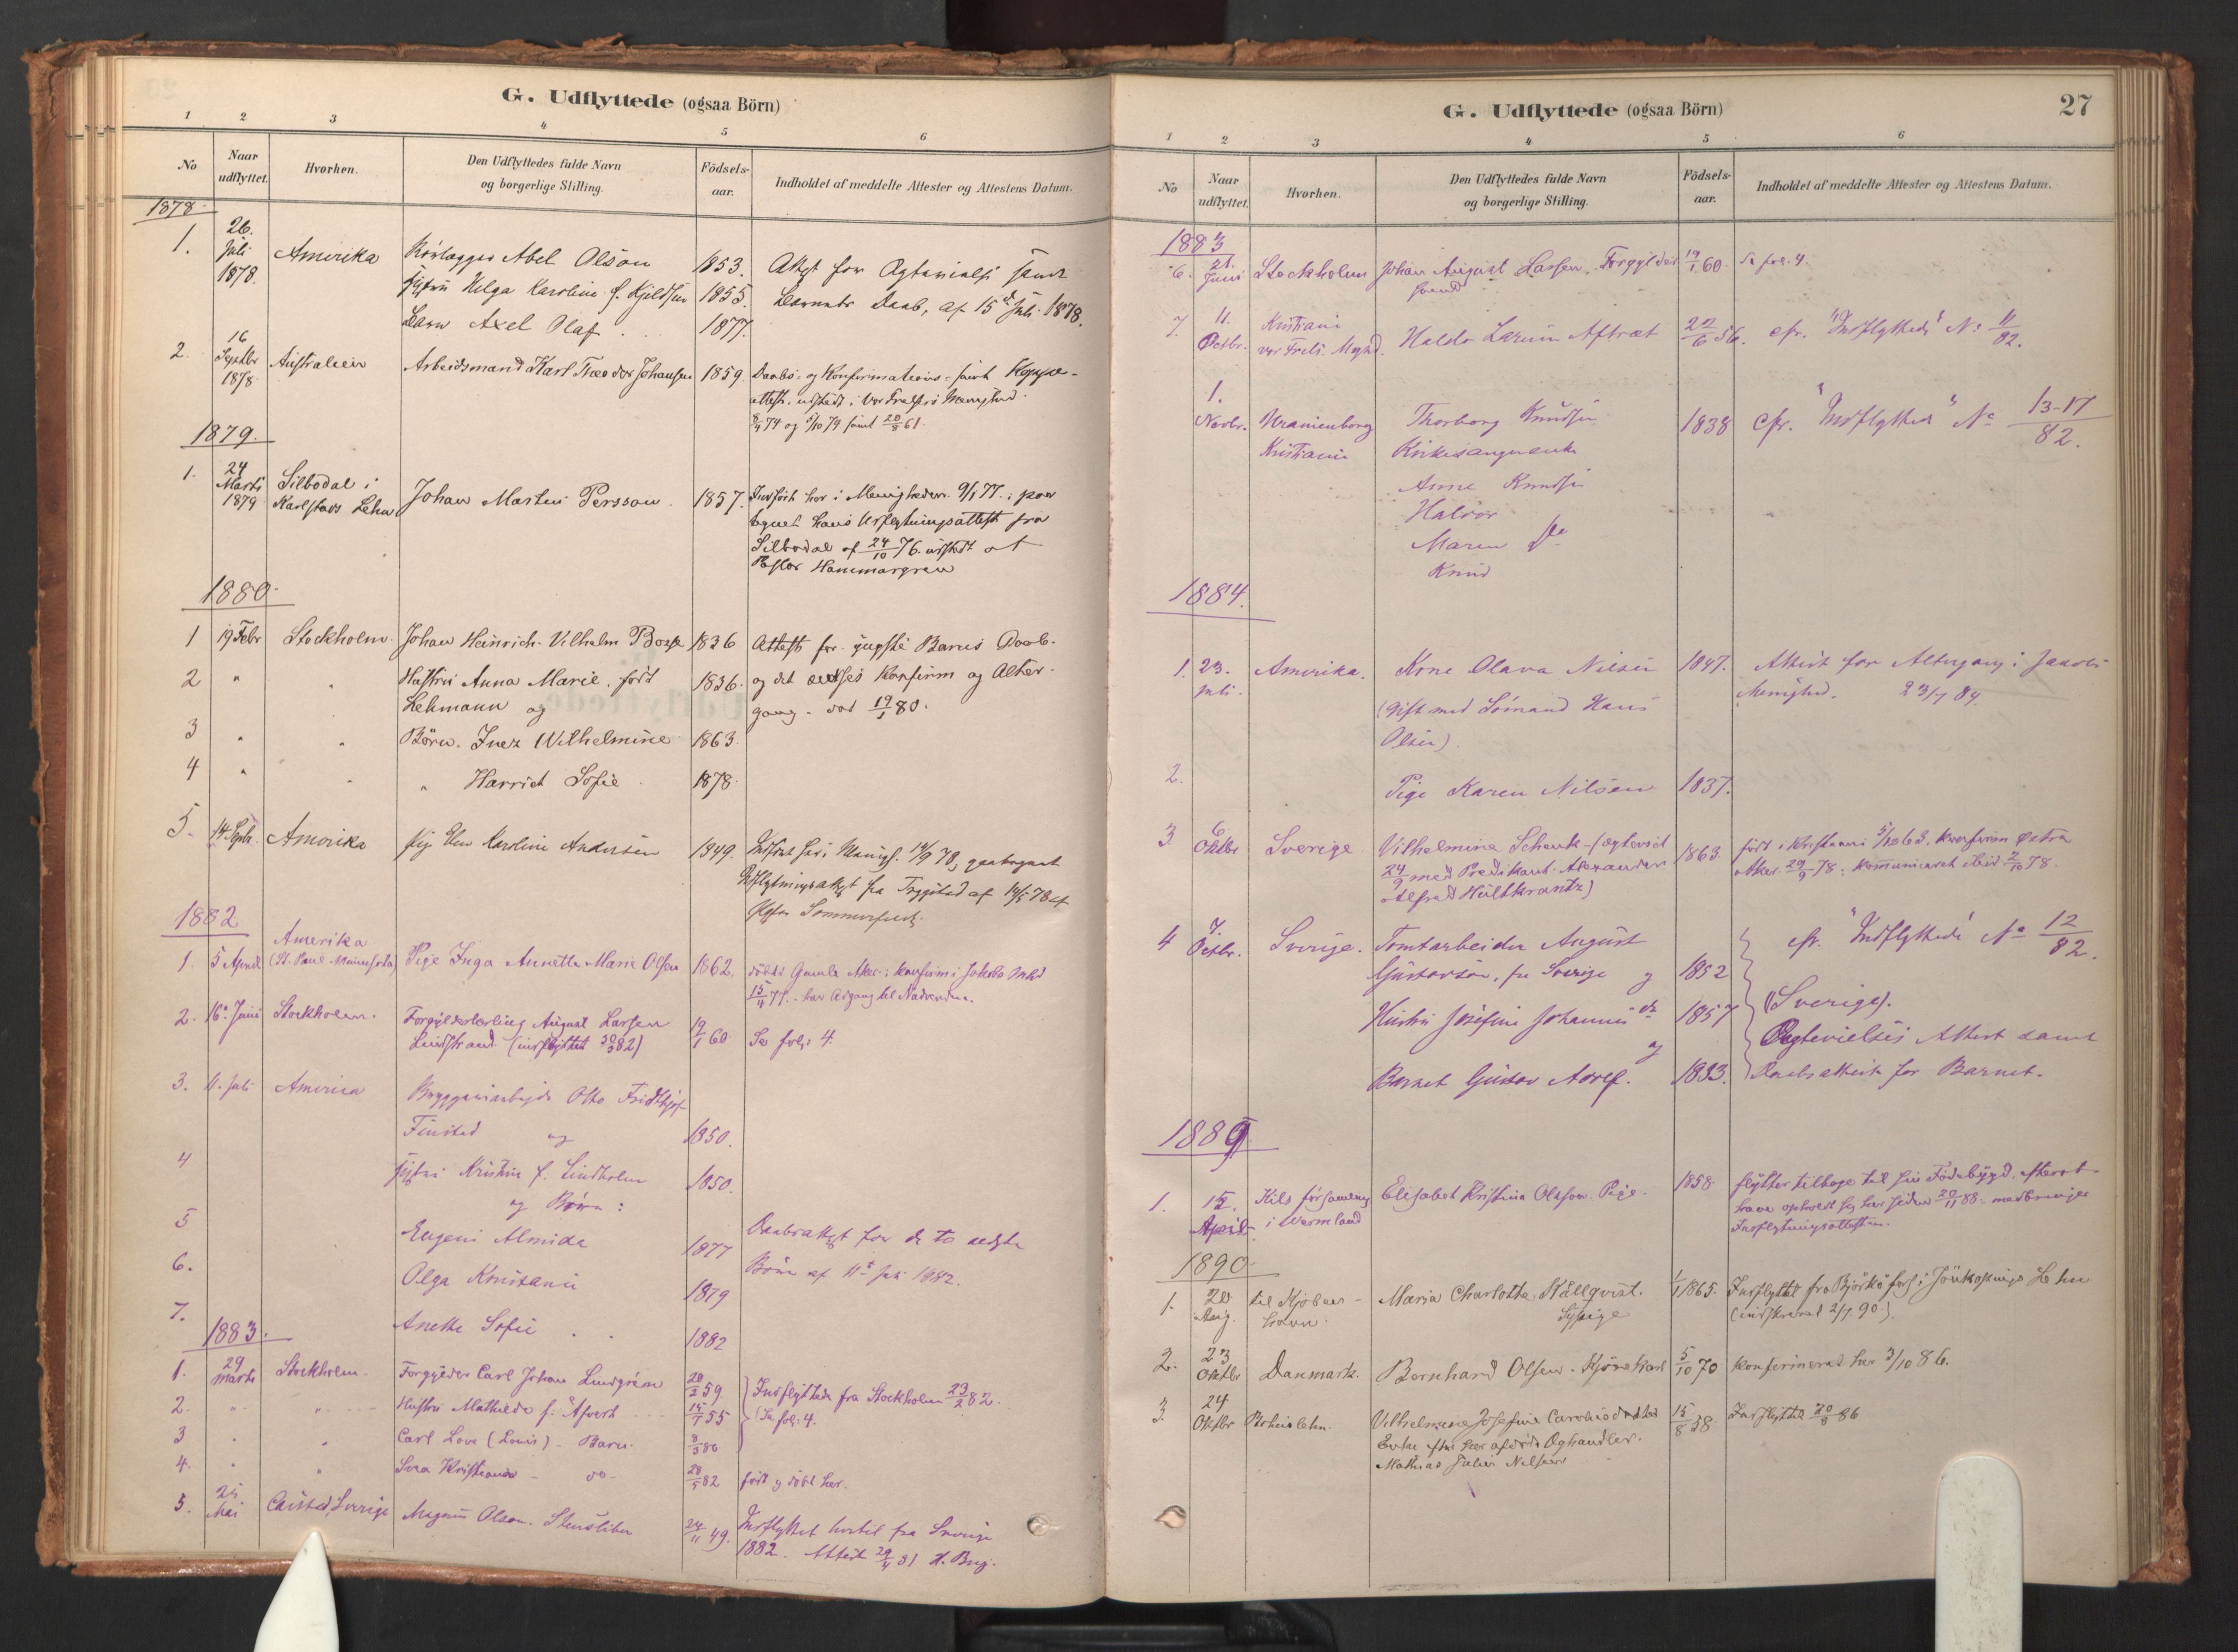 G. Udflyttede (ogsaa Börn)
1 2 3 4 5 6
No
Naar udflyttet.
Hvorhen.
Den Udflyttedes fulde Navn og borgerlige Stilling.
Födsels-aar.
Indholdet af meddelte Attester og Attestens Datum.
1878
1. 26. Juli 1878. Amerika Abel Olson 1853.
Helga Karoline f. Kjeldsen 1855. 15de Juli 1878.
Barn Axel Olaf 1877.
2. 16 Septbr 1878 Australien Arbeidsmand Karl Theodor Johansen 1859. Daabs- og Konfirmations- samt Koppe-
attest. udstedt i
1879.
1. 24 Marts 1879 Silbodal i Karlstads Lehn Johan Martin Persson 1857. Indført her i Menigheden 9/1 77.
hans Udflytningsattest fra
Silbodal af 24/10 76. udstedt af
Pastor Hammargren
1880.
1 19 Febr Stockholm. Johan Heinrich Vilhelm 1836 Attest for yngste Barns Daab.
2 " " Hustru Anna Marie, født 1836. og det ældstes Konfirm og Alter-
Lehmann og gang. 19/1 80.
3 " " Børn. Inez Wilhelmine 1863.
4 " " " Harriet Sofie 1878.
5. 14 Septr. Amerika Pige Elen Karoline Andersen 1849. 14/9 78,
Indflytningsattest fra Trygstad af 14/5 78 af
Sommerfeldt.
1882
1. 5 April Amerika (St. Paul Minnesota) Pige Inga Annette Marie Olsen 1862. døbt i Gamle Aker; konfirm i Jakobs
15/4 77. har Adgang til Nadverden.
2. 16. Juni Stockholm. Forgylderlærling August Larsen 19/1 60 Se fol: 4.
Lindstrand. (indflyttet 30/3 82)
3. 11. Juli America Bryggeriarbejder Otto Fridthjof
Finstad og 1850.
4 Kristine f. Lindholm 1850.
og Børn:
5 Eugeni Almida 1877 Daabsattest for de to ældste
6. Olga Konstanci 1879 Børn af 11te Juli 1882.
7. Anette Sofie 1882
1883.
1. 29 Marts Stockholm. Forgylder Carl Johan Lundgren 20/2 59 Indflyttede fra Stockholm 23/2 82.
2. " " Hustru Mathilde f. 15/1 55 (Se fol: 4.
3 " " Carl Love (Louis) - Barn. 8/3 80
4. " " Svea Kristiania - do - 28/5 82 født og døbt her.
5. 25 Mai Carlstad, Sverige Magnus Olson. 24/11 49. Indflyttet hertil fra Sverige
1882. Attest 29/4 81
G. Udflyttede (ogsaa Börn)
27
1 2 3 4 5 6
No
Naar udflyttet.
Hvorhen.
Den Udflyttedes fulde Navn og borgerlige Stilling.
Födsels-aar.
Indholdet af meddelte Attester og Attestens Datum.
1883
6. 21. Juni Stockholm Johan August Larsen, Forgylder 19/1 60. Se fol. 4.
7. 11. Octbr. Kristiania vor Frels. Mghd. Halda Larum Aftret 22/6 56. cfr. "Indflyttede" No 11/82.
1. Novbr. Uranienborg Kristiania Thorborg Knudsen 1838 cfr. "Indflyttede" No 13-17/82.
Kirkesangerenke
Anne Knudsen
Halvor
Maren do
Knud
1884.
1. 23. Juli. Amerika. Krne Olava Nilsen 1847. Attest for Altergang i Jacobs
(gift med Sømand Hans Menighed. 23/7 84.
Olsen).
2. Pige Karen Nilsen 1837.
3 6 Oktbr Sverige Vilhelmine Schenk (ægteviet 1863. født i Kristiania 5/12 63. konfirm Østre
24/9 med Predikant Alexander Aker. 29/9 78; kommuniceret ibid 2/10 78.
Alfred Hultkrantz)
4 7. Octbr. Sverige. Tomtarbeider August cfr. "Indflyttede" No 12/82.
Gustavson, fra Sverige og 1852
Hustru Josefine Johannes dr 1857 (Sverige).
og Ægtevielses Attest samt
Barnet Gustav Adolf. 1883. Daabsattest for Barnet.
1889
1. 15. April Kils församling i Wermland Elisabet Kristina Olsson. Pige. 1858 flytter tilbage til sin Fødebygd. efter at
have opholdt sig her siden 20/11 88. medbringer
Indflytningsattesten.
1890
1. 20 Aug. til Kjøben-havn. Maria Charlotta Källqvist. 1/1 1865. Indflyttet fra Bjørkø förs. i Jönkøpings Lehn
Sypige (indskrevet 2/1 90.)
2. 23 Oktbr Danmark. Bernhard Olsen. Kjørekarl 5/10 70 Konfirmeret her 3/10 86.
3. 24 Oktbr Bohuslehn. Vilhelmine Josefine 15/8 38. Indflyttet 20/8 86
Enke efter her afdøde Øghandler.
Mathias Julius Nilsen